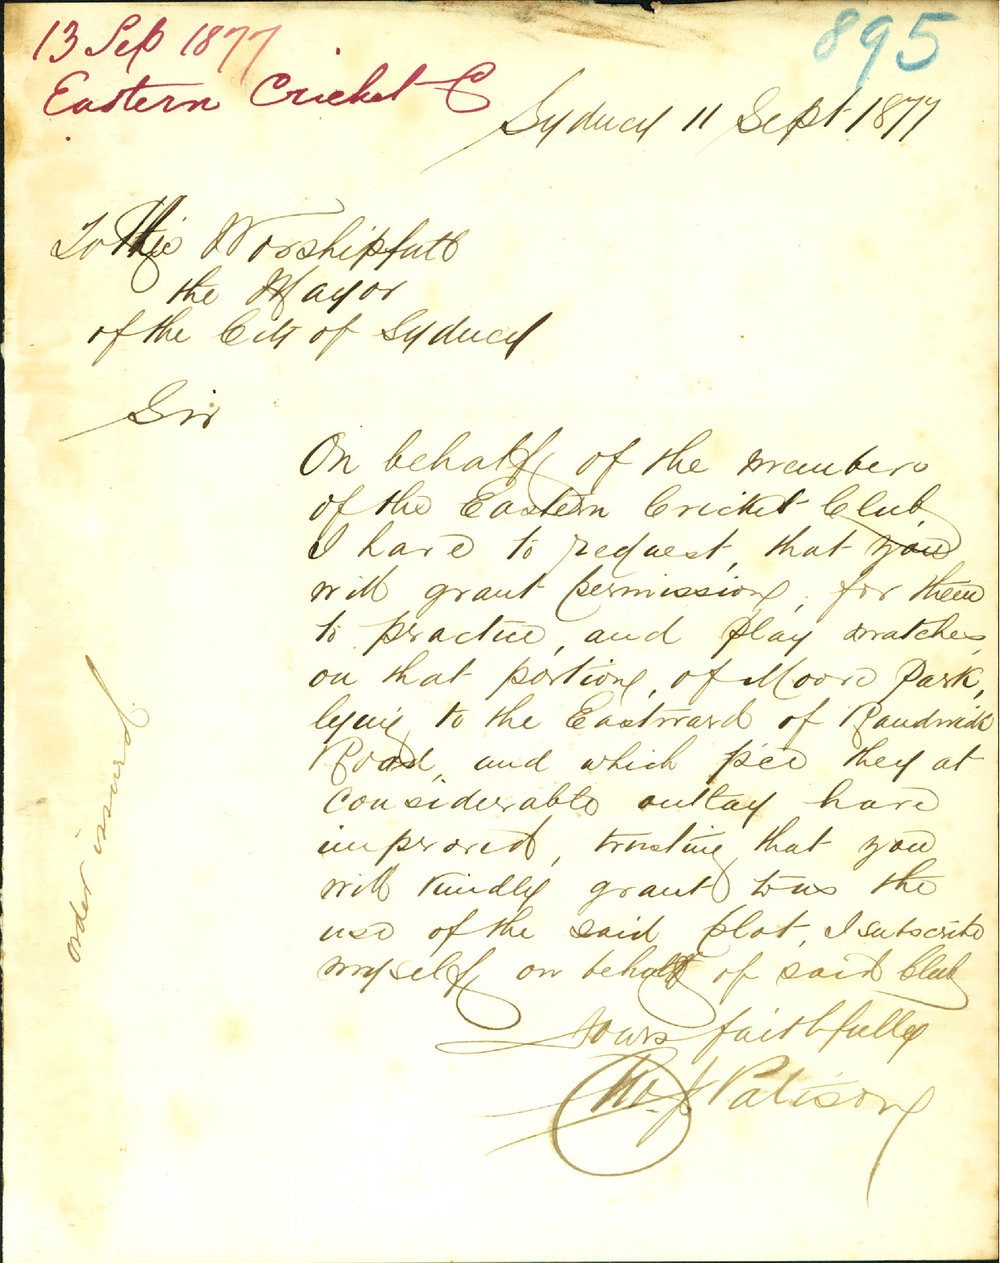 13 Sep 1877
Eastern Cricket C
895
Sydney 11 Sept 1877
To His Worshipfull
the Mayor
of the City of Sydney
Sir
On behalf of the members
of the Eastern Cricket Club,
I have to request, that you
will grant permission, for them
to practice, and play matches,
on that portion, of Moore Park,
lying to the Eastward of Randwick
Road, and which they at
considerable outlay have
improved, trusting that you
will kindly grant to us the
use of the said plot, I subscribe
myself on behalf of said Club
Yours faithfully
Tho. J Pattison
order issued